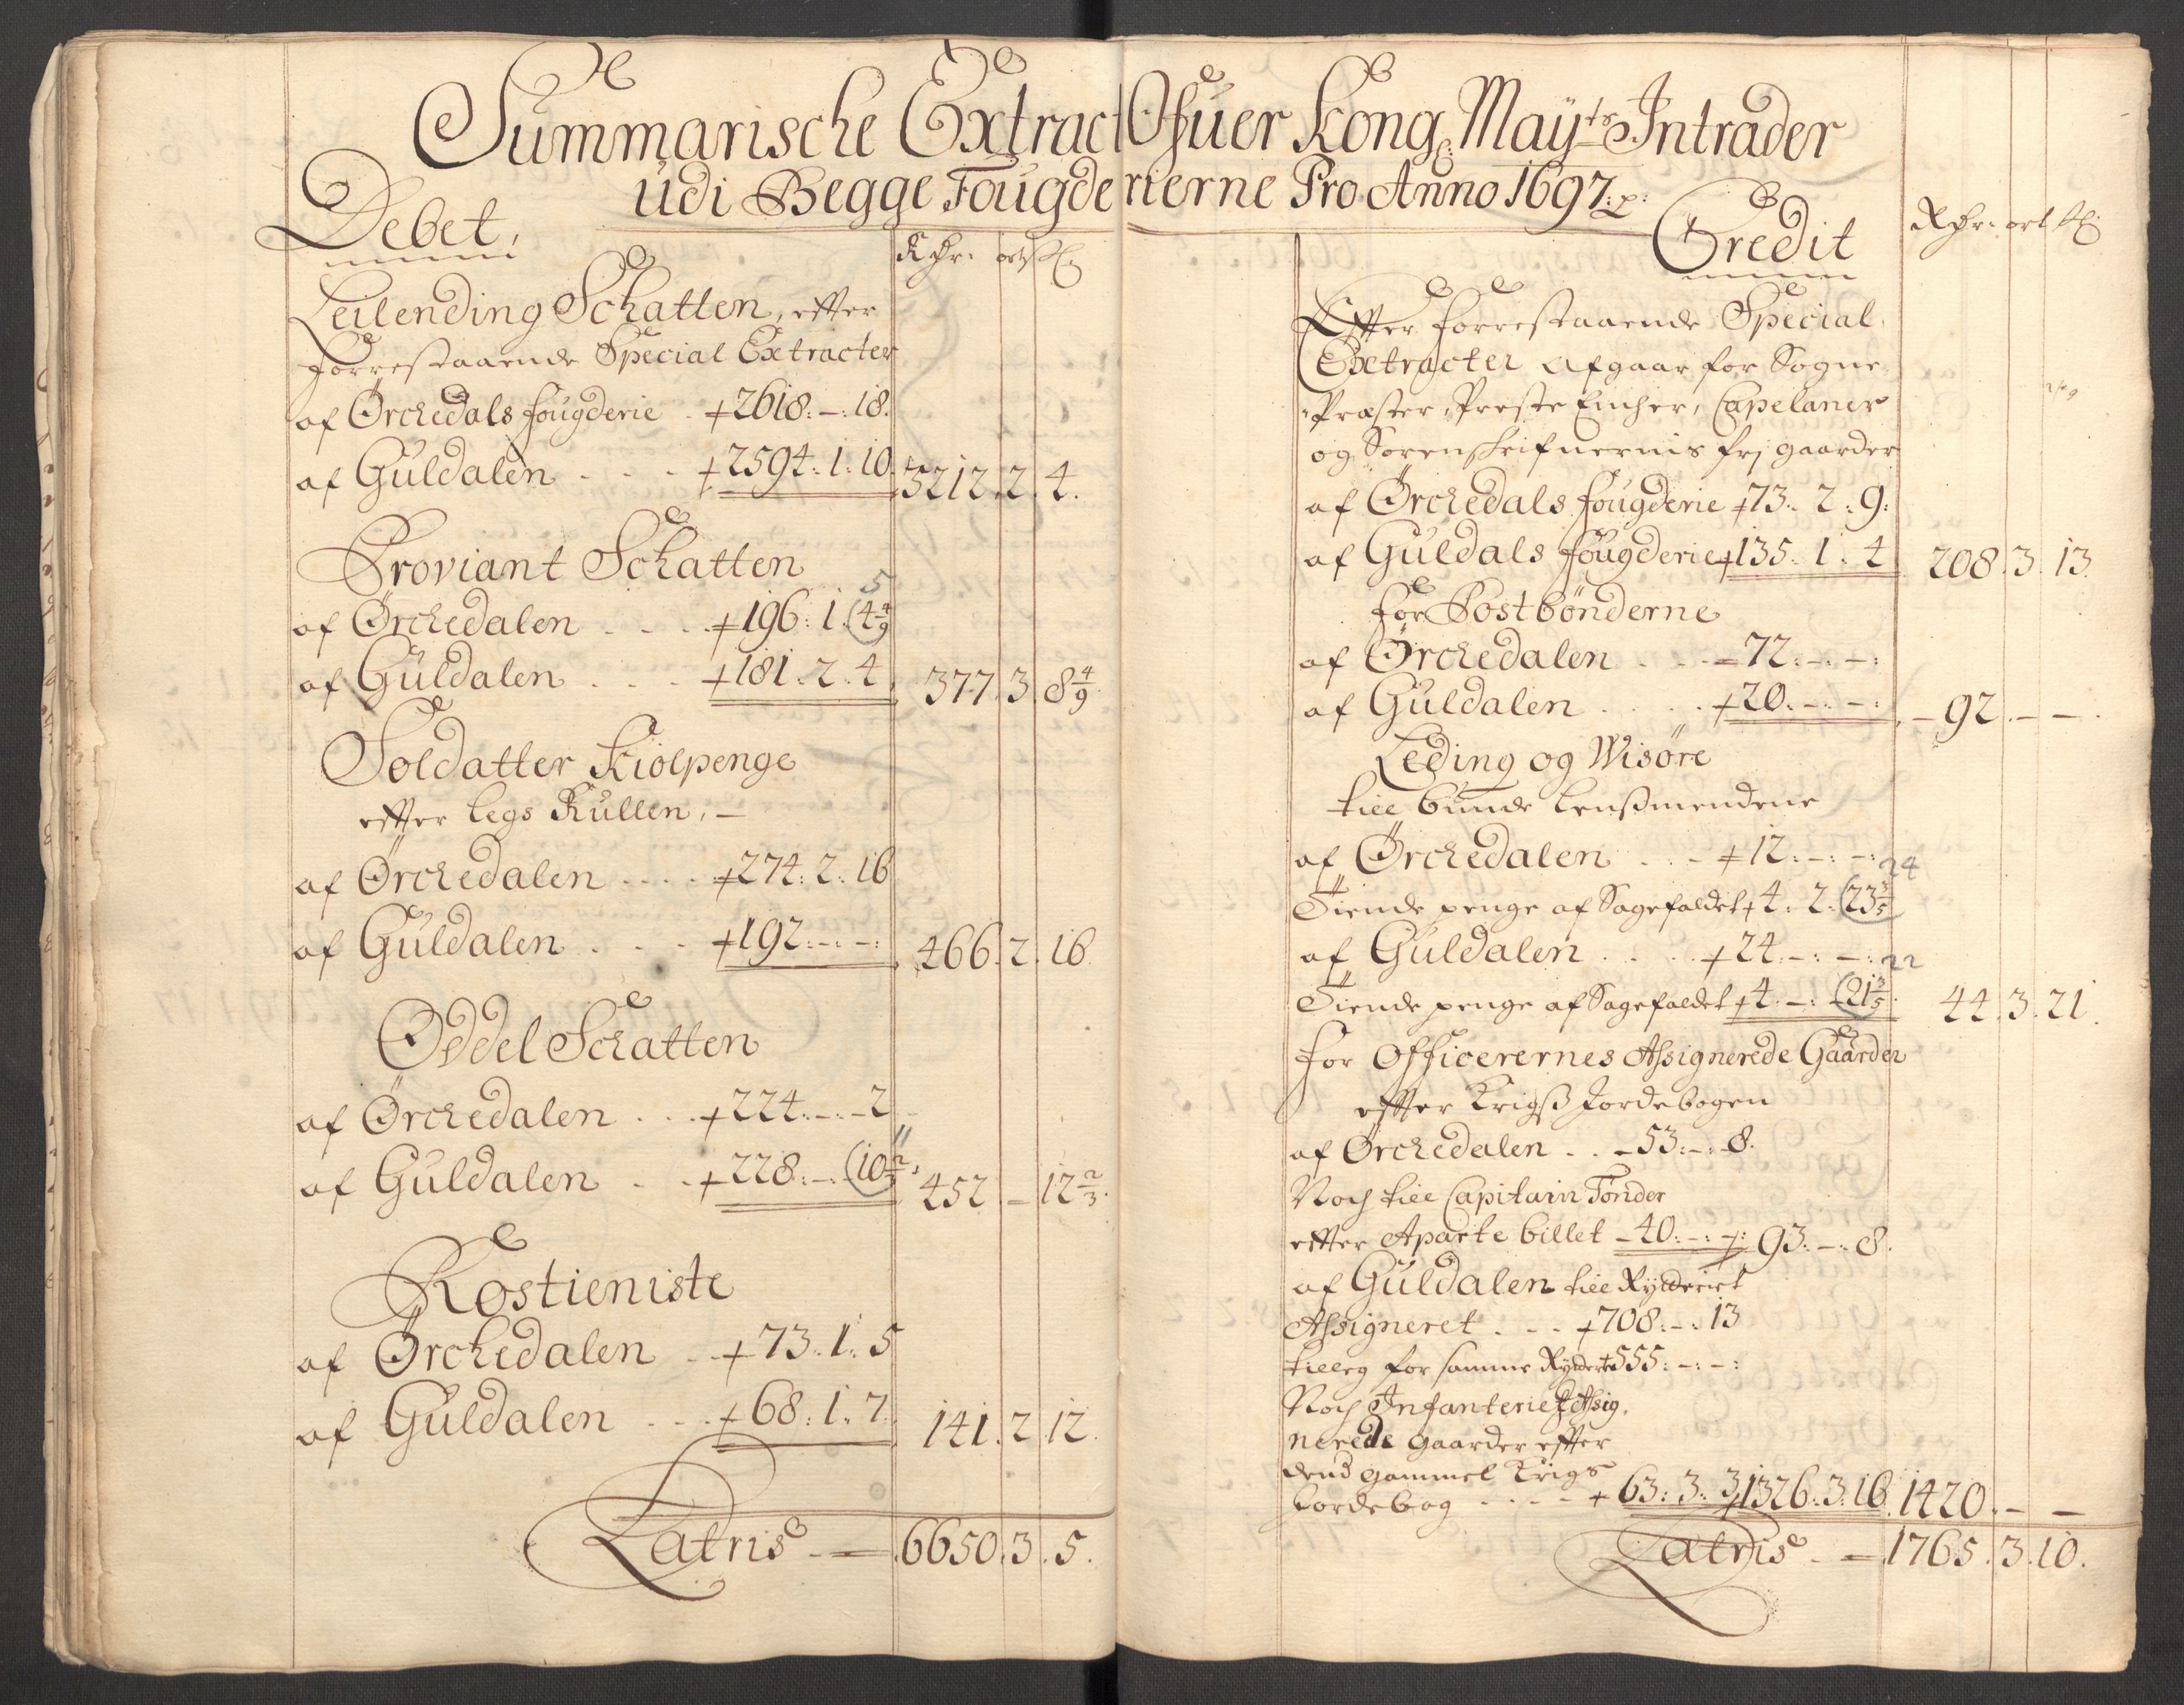 Summarische Extract Ofuer Kong. Mayts Intrader
udi Begge Fougderierne Pro Anno 1697
Debet,
Rdr: ort ß
Leilending Schatten, effter
forrestaaende Special Extracter
af Örchedals fougderie + 2618: - : 18.
af Guldalen + 2594: 1: 10 5212. 2. 4.
Proviant Schatten
5
af Örchedalen + 196: 1. 4 4/9
af Guldalen + 181. 2. 4 377. 3. 8 4/9
Soldatter Kiolpenge
effter legs Rullen, -
af Örchedalen + 274: 2: 16
af Guldalen + 192: - : - : 466. 2. 16
Oddel Schatten
af Örchedalen + 224: - : 2
11
af Guldalen + 228: - : 10 2/3 452 - 12 2/3
Rostieniste
af Örchedalen + 73. 1: 5
af Guldalen + 68: 1. 7. 141. 2. 12.
Latris - 6650. 3. 5.
Credit
Rdr: ort ß
Effter forrestaaende Special
Extracter Afgaar for Sogne
Præster, Preste Encher, Capelaner
og Sorenskrifuernis frj gaarder
af Örchedals fougderie + 73. 2. 9.
af Guldals fougderie + 135. 1. 4 208. 3. 13
for Postbönderne
af Örchedalen - 72: - : - :
af Guldalen + 20. - : - : 92. - -
Leding og Wisøre
till bunde lensmendene
af Örchedalen + 12: - : - :
24
Tiende penge af Sagefaldet + 4. 2. 23 3/5
af Guldalen + 24. - : - :
22
Tiende penge af Sagefaldet + 4. - : 21 3/5 44. 3. 21.
for Officerernes Assignerede Gaarder
effter Krigs Jordebogen
af Örchedalen - 53: - : 8.
Noch till Capitain Tønder
effter Aparte billet - 40: - : - : 93. - : 8.
af Guldalen till Rytteriet
Assigneret + 708: - : 13
tilleg for samme Rytterie + 555: - : - :
Noch Infanteriet Assig,
nerede gaarder effter
dend gammel Krigs
Jordebog + 63: 3: 3 1326. 3. 16 1420. - -
Latris - 1765. 3. 10.